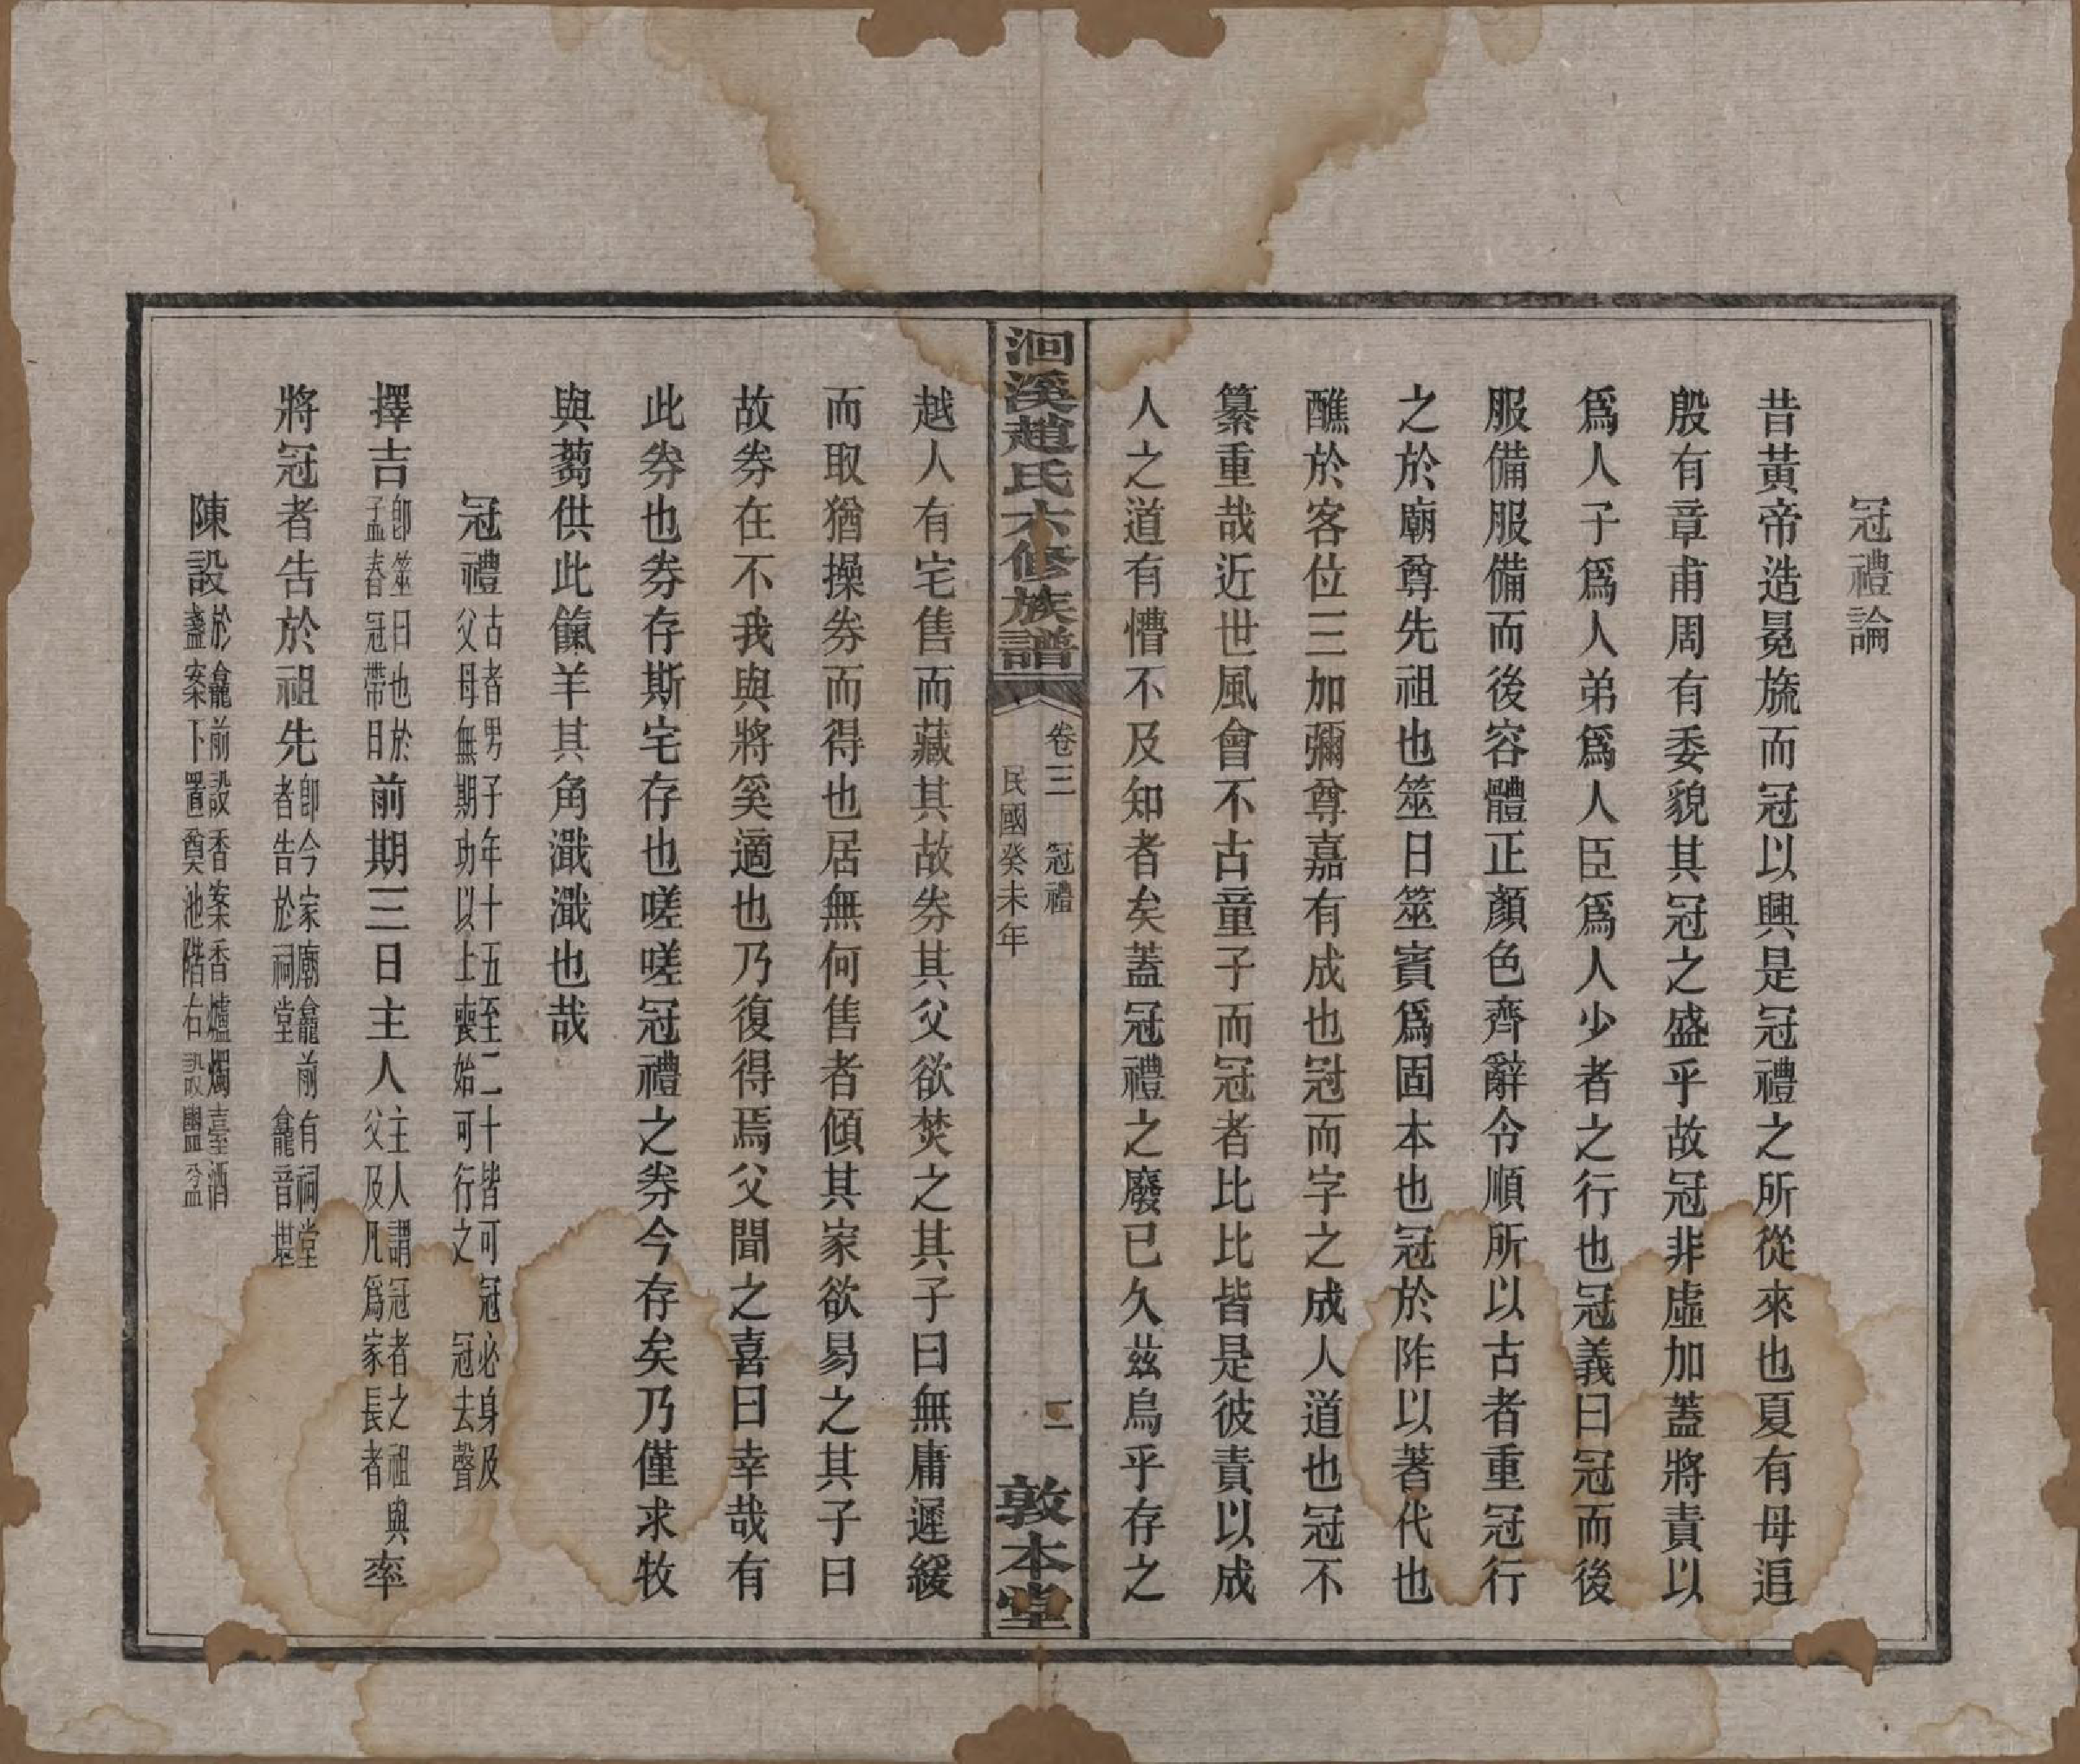 冠禮論
昔黃帝造冕旒而冠以興是冠禮之所從來也夏有母追
殷有章甫周有委貌其冠之盛乎故冠非虛加蓋將責以
爲人子爲人弟爲人臣爲人少者之行也冠義曰冠而後
服備服備而後容體正顏色齊辭令順所以古者重冠行
之於廟尊先祖也筮日筮賓爲固本也冠於阼以著代也
醮於客位三加彌尊嘉有成也冠而字之成人道也冠不
綦重哉近世風會不古童子而冠者比比皆是彼責以成
人之道有懵不及知者矣蓋冠禮之廢已久茲烏乎存之
洄溪趙氏六修族譜
卷三 冠禮
民國癸未年
二
敦本堂
越人有宅售而藏其故券其父欲焚之其子曰無庸遲緩
而取猶操券而得也居無何售者傾其家欲易之其子曰
故券在不我與將奚適也乃復得焉父聞之喜曰幸哉有
此券也券存斯宅存也嗟嗟冠禮之券今存矣乃僅求牧
與蒭供此餼羊其角濈濈也哉
冠禮古者男子年十五至二十皆可冠必身及父母無期功以上喪始可行之 冠去聲
擇吉卽筮日也於孟春冠帶日前期三日主人主人謂冠者之祖與父及凡爲家長者率
將冠者告於祖先卽今家廟龕前有祠堂者告於祠堂 龕音堪
陳設於龕前設香案香爐燭臺酒盞案下置奠池階右設盥盆